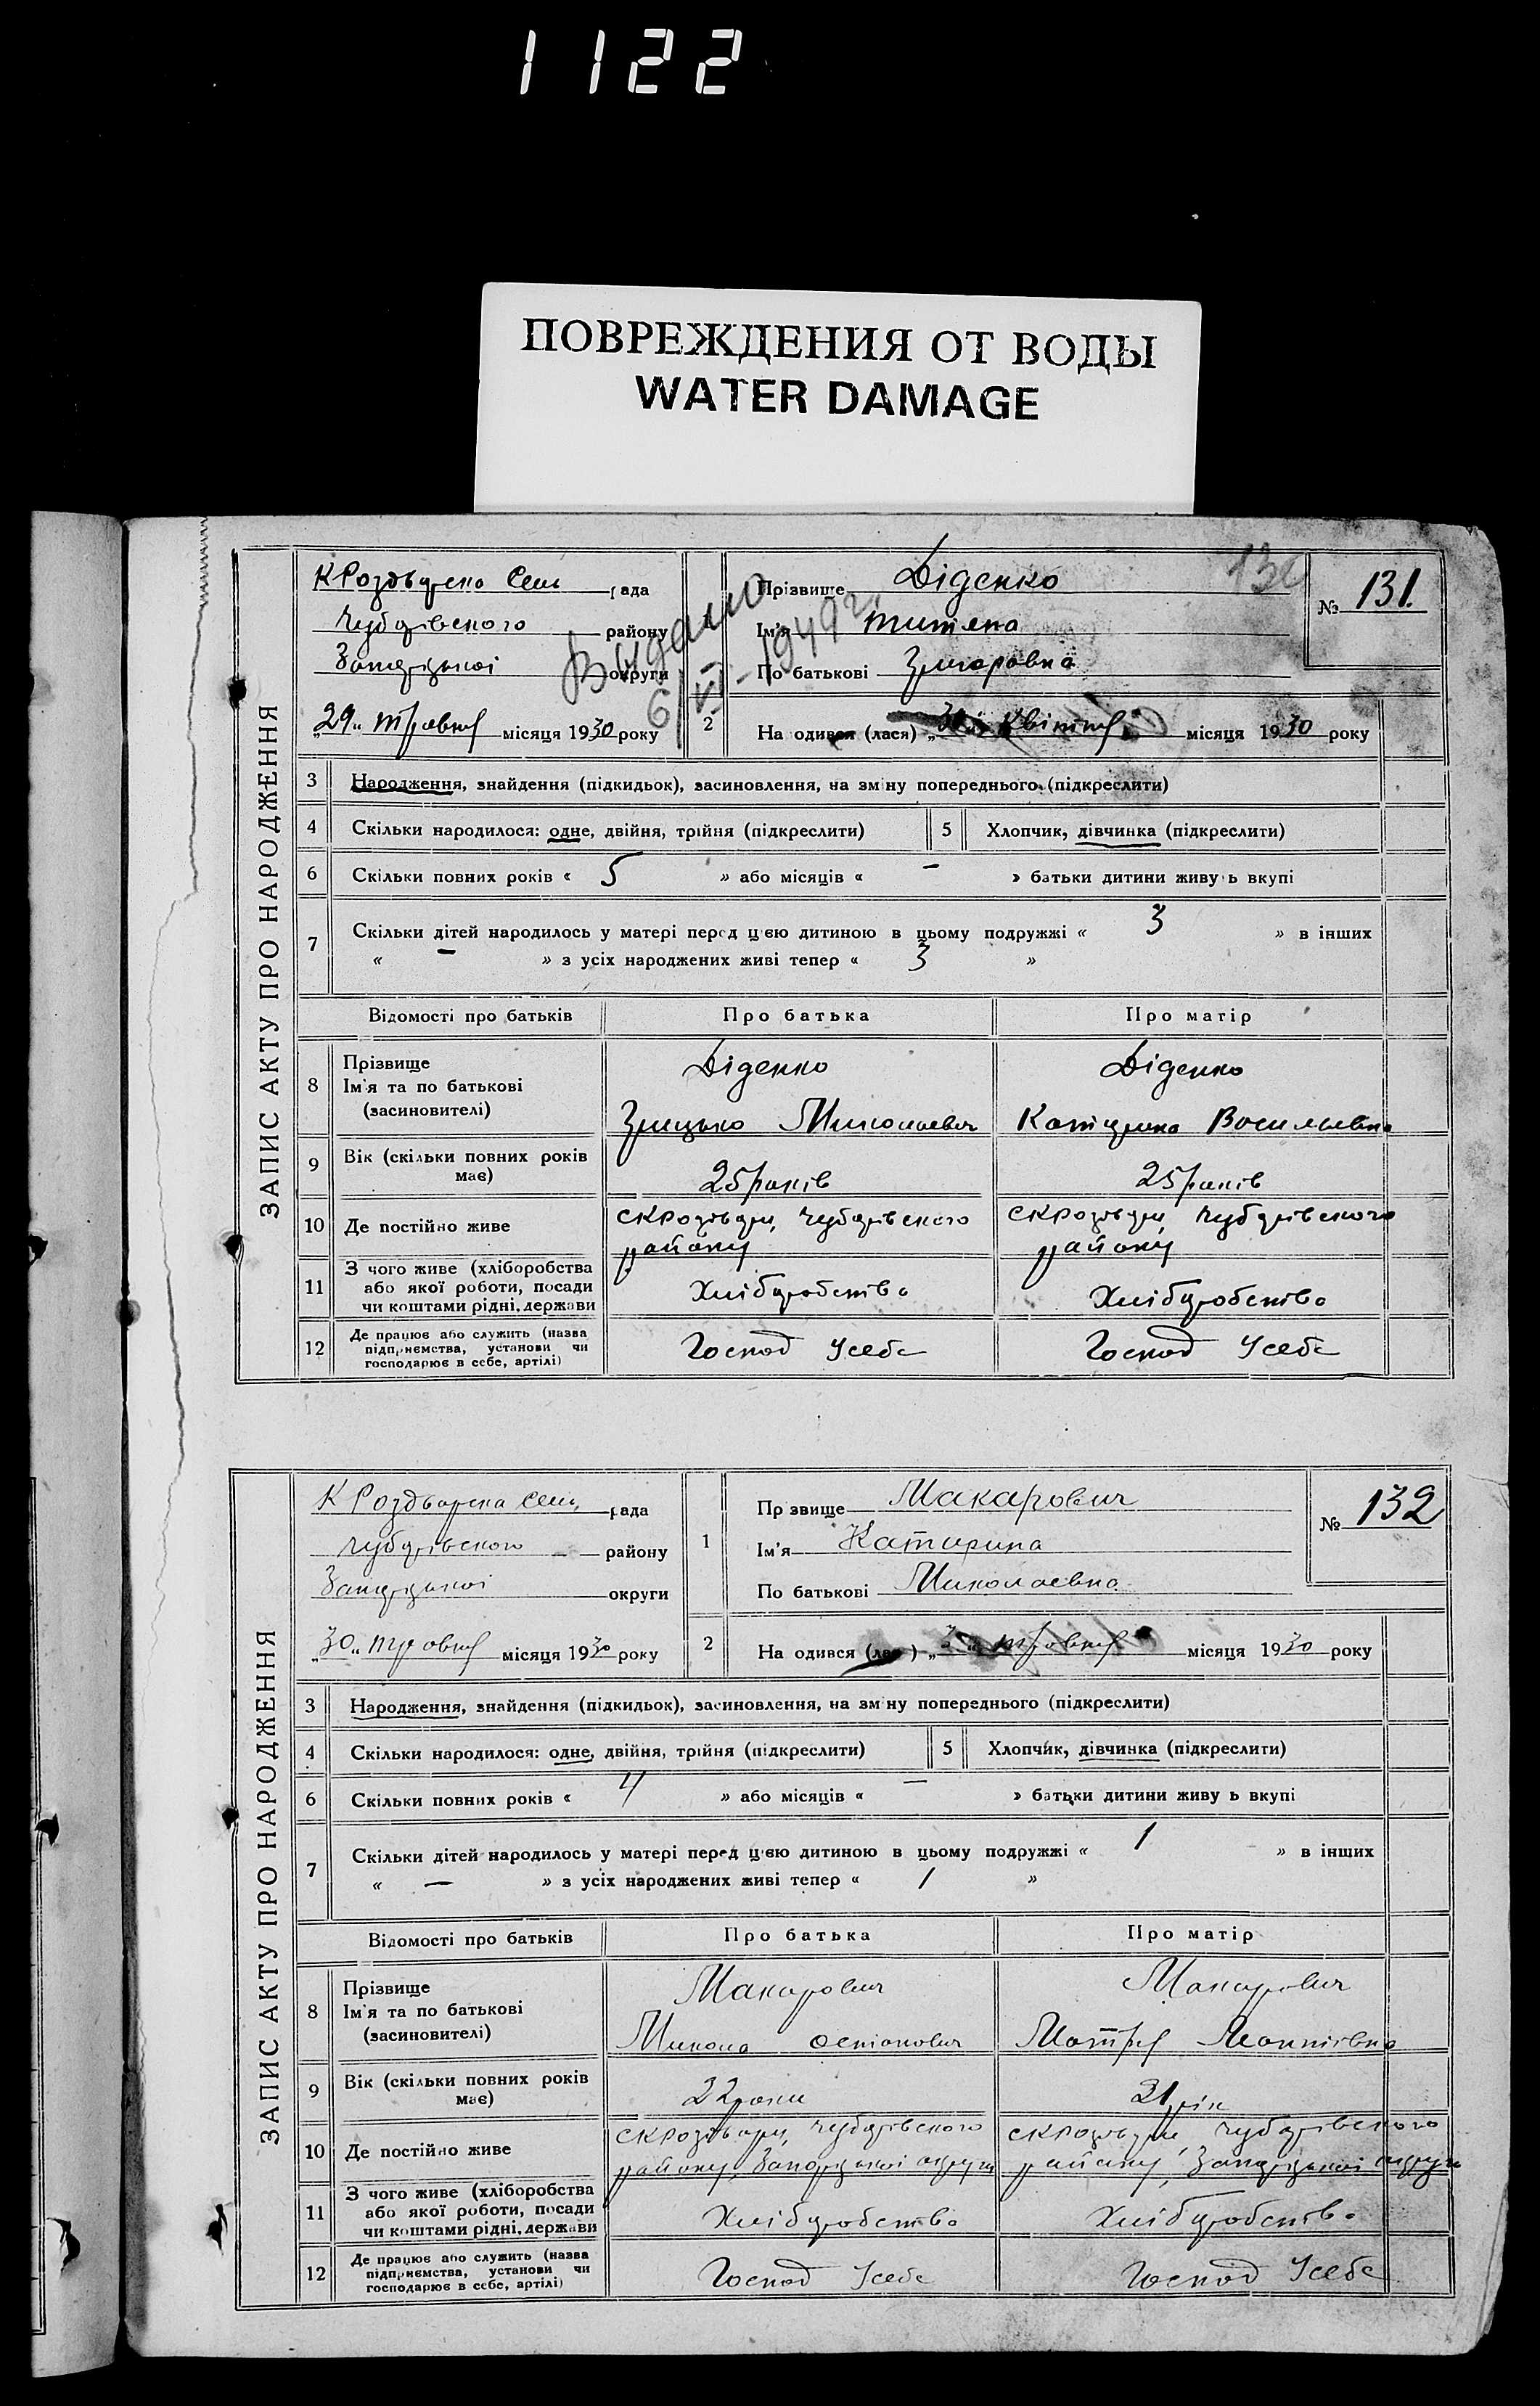 1122
ПОВРЕЖДЕНИЯ ОТ ВОДЫ
WATER DAMAGE
ЗАПИС АКТУ ПРО НАРОДЖЕННЯ
рада
Чубарівського району
Запорізької округи
„29„ травня місяця 1930 року
Видано
6/VII-1949 г.
Прізвище Діденко
Ім'я Титяна
По батькові Григоровна
130
№ 131.
2 На одився (лася) „ „ Квітня місяця 1930 року
3 Народження, знайдення (підкидьок), засиновлення, на зміну попереднього (підкреслити)
4 Скільки народилося: одне, двійня, трійня (підкреслити) 5 Хлопчик, дівчинка (підкреслити)
6 Скільки повних років « 5 » або місяців « – » батьки дитини живу ь вкупі
7 Скільки дітей народилось у матері перед цією дитиною в цьому подружжі « 3 » в інших
« – » з усіх народжених живі тепер « 3 »
Відомості про батьків Про батька Про матір
8 Прізвище
Ім'я та по батькові
(засиновителі)
Діденко Діденко
Грицько Миколаевич Катирина Василівна
9 Вік (скільки повних років має)
25 років 25 років
10 Де постійно живе
Чубарівського району Чубарівського району
11 З чого живе (хліборобства
або якої роботи, посади
чи коштами рідні, держави
Хліборобство Хліборобство
12 Де працює або служить (назва
підприємства, установи чи
господарює в себе, артілі)
Господ Усебе Господ Усебе
ЗАПИС АКТУ ПРО НАРОДЖЕННЯ
рада
Чубарівського району
Запорізької округи
„30„ травня місяця 1930 року
1 Пр звище Макарович
Ім'я Катирина
По батькові Миколаевна
№ 132
2 На одився (лас ) „3„ травня місяця 1930 року
3 Народження, знайдення (підкидьок), засиновлення, на зміну попереднього (підкреслити)
4 Скільки народилося: одне, двійня, трійня (підкреслити) 5 Хлопчик, дівчинка (підкреслити)
6 Скільки повних років « 4 » або місяців « – » батьки дитини живу ь вкупі
7 Скільки дітей народилось у матері перед цією дитиною в цьому подружжі « 1 » в інших
« – » з усіх народжених живі тепер « 1 »
Відомості про батьків Про батька Про матір
8 Прізвище
Ім'я та по батькові
(засиновителі)
Макарович Макарович
Микола Остапович Мотря
9 Вік (скільки повних років має)
22 роки 21 рік
10 Де постійно живе
Чубарівського району, Запорізької округи Чубарівського району, Запорізької округи
11 З чого живе (хліборобства
або якої роботи, посади
чи коштами рідні, держави
Хліборобство Хліборобство
12 Де працює або служить (назва
підприємства, установи чи
господарює в себе, артілі)
Господ Усебе Господ Усебе